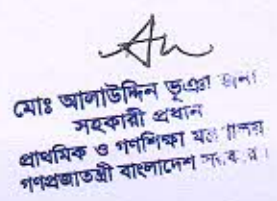 মোঃ আলাউদ্দিন ভূঞা জনী
সহকারী প্রধান
প্রাথমিক ও গণশিক্ষা মন্ত্রণালয়
গণপ্রজাতন্ত্রী বাংলাদেশ সরকার।